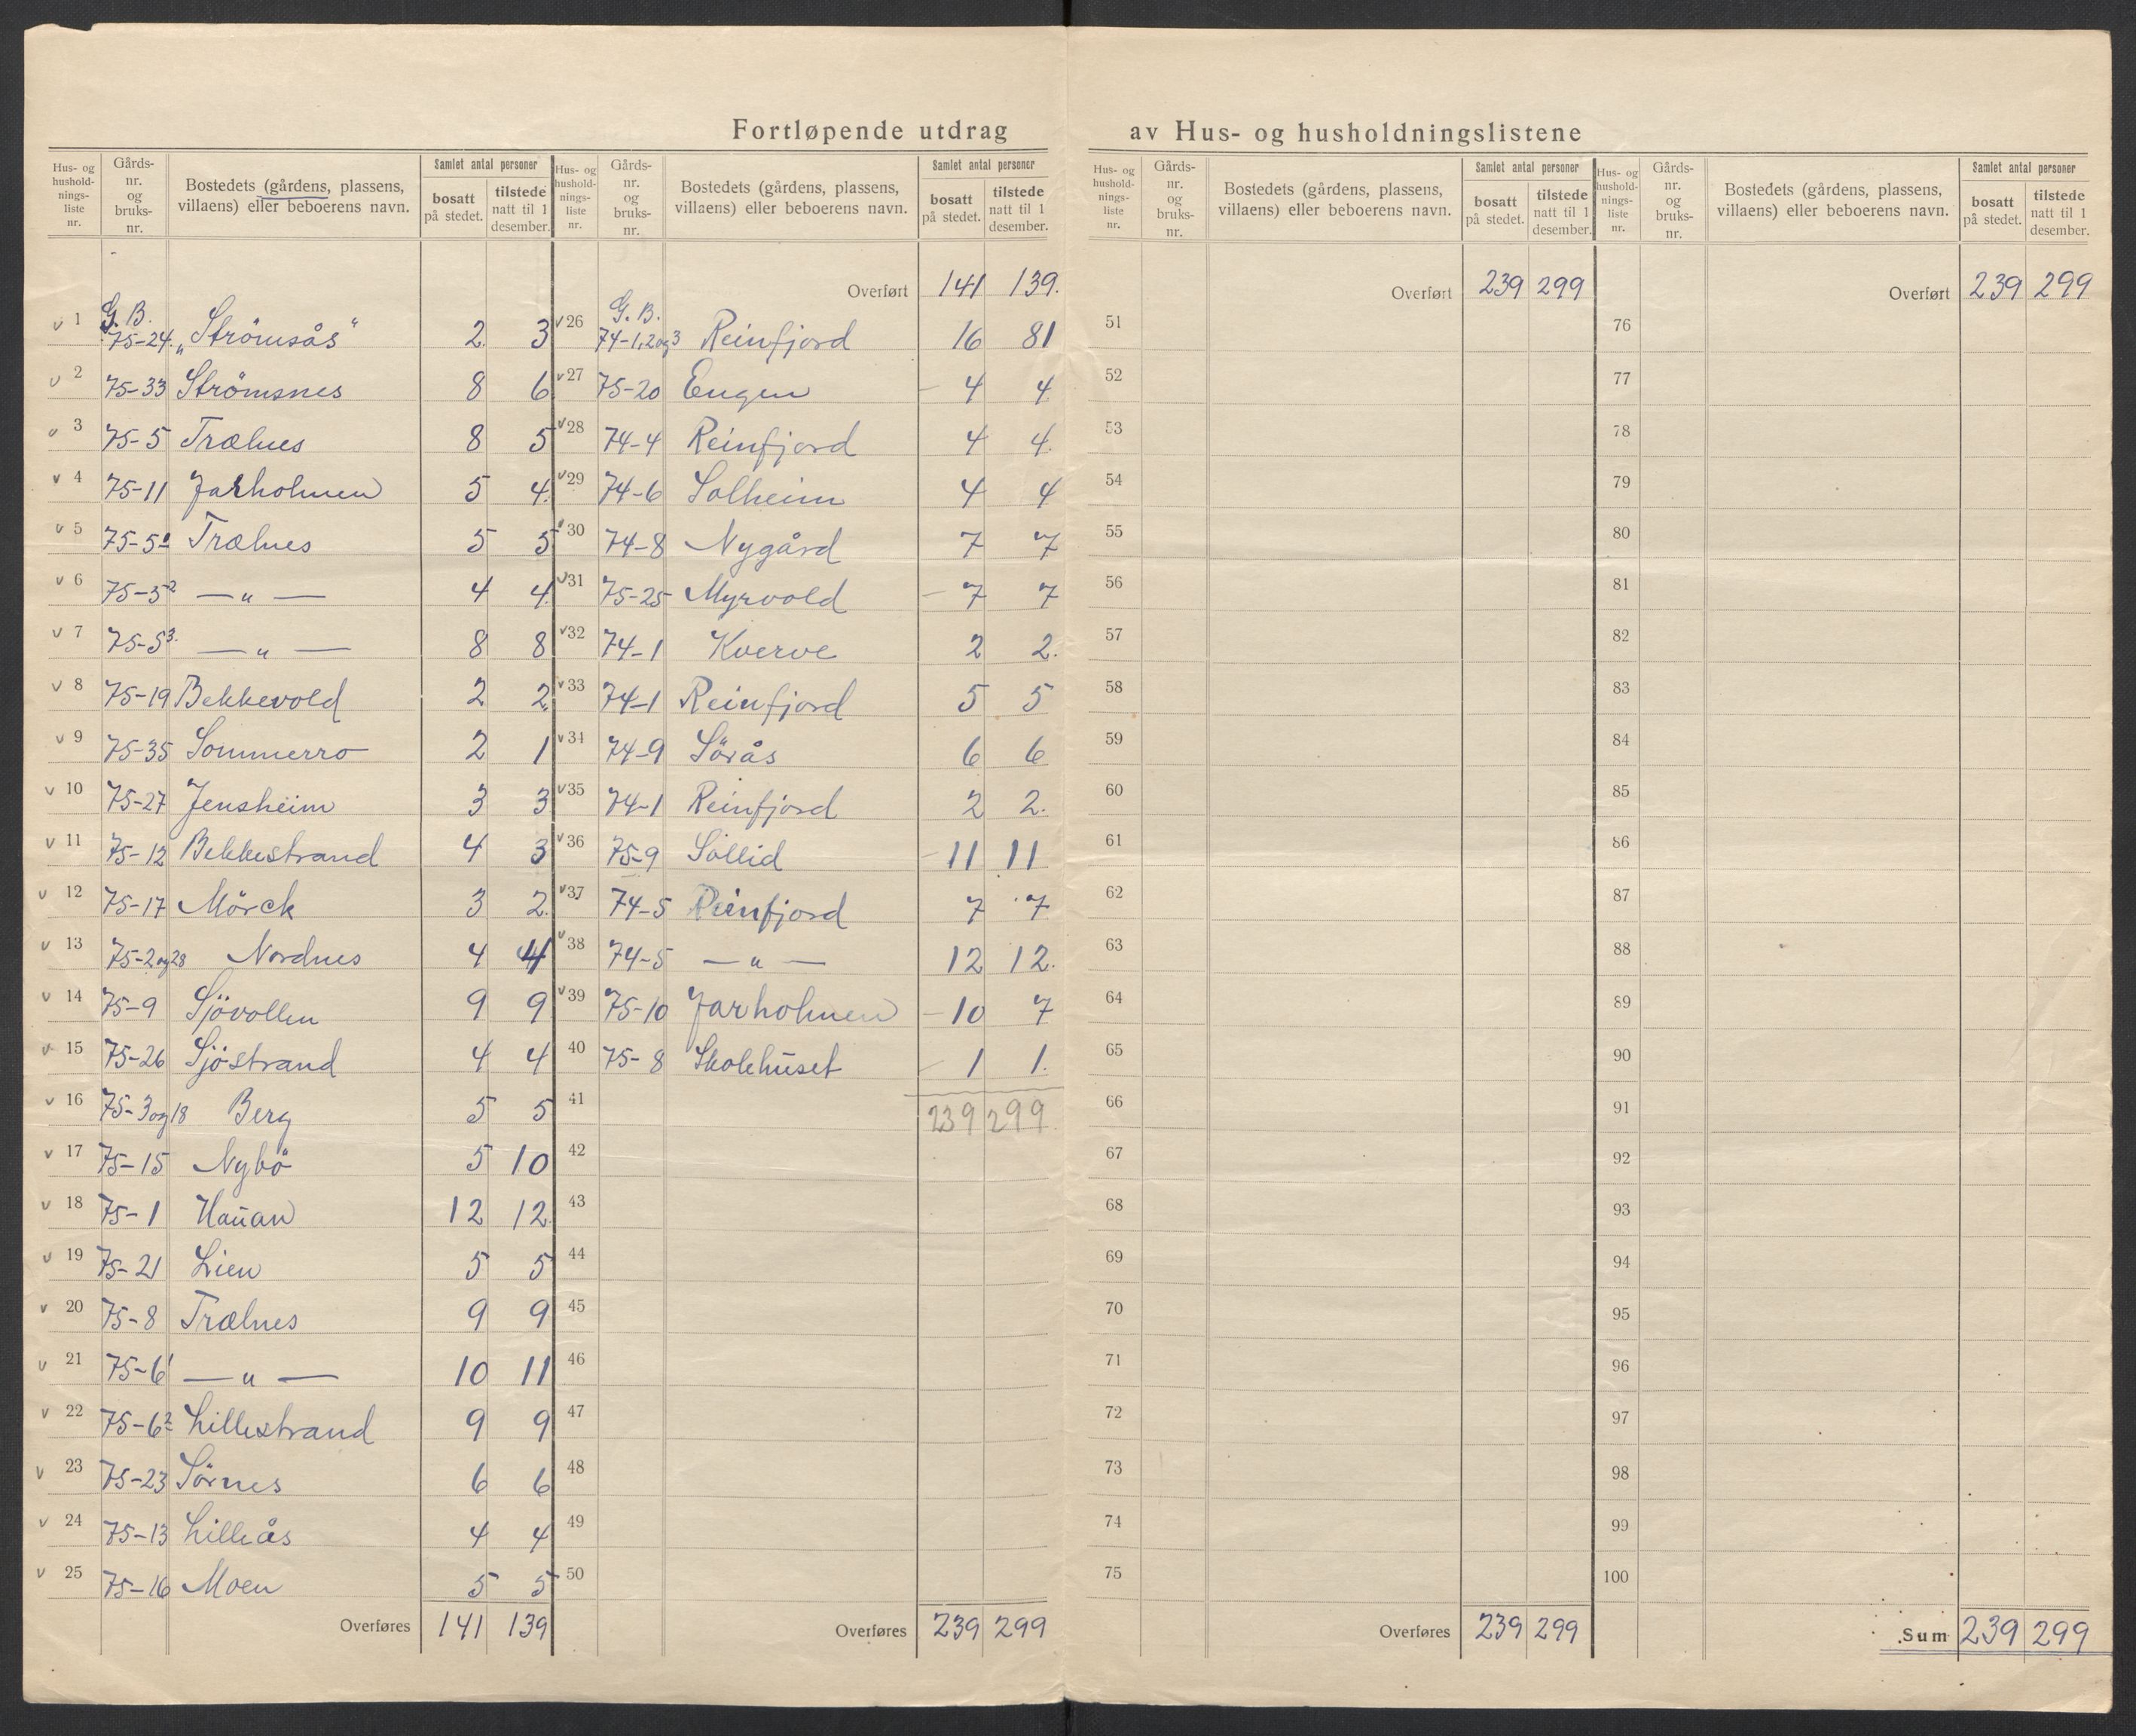 Fortløpende utdrag av Hus- og husholdningslistene
Hus- og hushold-nings-liste nr. Gårds-nr. og bruks-nr. Bostedets (gårdens, plassens, villaens) eller beboerens navn. Samlet antal personer bosatt på stedet. tilstede natt til 1 desember.
G. B.
v 1 75-24. „Strömsås" 2 3
v 2 75-33 Strömsnes 8 6
v 3 75-5 Trælnes 8 5
v 4 75-11 Jarholmen 5 4.
v 5 75-5¹ Trælnes 5 5
v 6 75-5² — „ — 4 4
v 7 75-5³. — „ — 8 8
v 8 75-19 Bekkevold 2 2
v 9 75-35 Sommerro 2 1
v 10 75-27 Jensheim 3 3
v 11 75-12 Bekkestrand 4 3
v 12 75-17 Mörck 3 2.
v 13 75-2og28 Nordnes 4 4
v 14 75-9 Sjövollen 9 9
v 15 75-26 Sjöstrand 4 4
v 16 75-3og18 Berg 5 5
v 17 75-15 Nybö 5 10
v 18 75-1 Hauan 12 12.
v 19 75-21 Lien 5 5
v 20 75-8 Trælnes 9 9
v 21 75-6¹ — „ — 10 11
v 22 75-6² Lillestrand 9 9
v 23 75-23 Sörnes 6 6
v 24 75-13 Lilleås 4 4
v 25 75-16 Moen 5 5
Overføres 141 139
Hus- og hushold-nings-liste nr. Gårds-nr. og bruks-nr. Bostedets (gårdens, plassens, villaens) eller beboerens navn. Samlet antal personer bosatt på stedet. tilstede natt til 1 desember.
Overført 141 139.
G. B.
v 26 74-1,2og3 Reinfjord 16 81
v 27 75-20 Engen – 4 4
v 28 74-4 Reinfjord 4 4.
v 29 74-6 Solheim 4 4
v 30 74-8 Nygård 7 7
v 31 75-25 Myrvold – 7 7
v 32 74-1 Kverve 2 2.
v 33 74-1 Reinfjord 5 5
v 34 74-9 Sörås 6 6
v 35 74-1 Reinfjord 2 2.
v 36 75-9 Sollid – 11 11
v 37 74-5 Reinfjord 7 7
v 38 74-5 — „ — 12 12.
v 39 75-10 Jarholmen – 10 7
40 75-8 Skolehuset – 1 1.
41 239 299
42
43
44
45
46
47
48
49
50
Overføres 239 299
Hus- og hushold-nings-liste nr. Gårds-nr. og bruks-nr. Bostedets (gårdens, plassens, villaens) eller beboerens navn. Samlet antal personer bosatt på stedet. tilstede natt til 1 desember.
Overført 239 299
51
52
53
54
55
56
57
58
59
60
61
62
63
64
65
66
67
68
69
70
71
72
73
74
75
Overføres 239 299
Hus- og hushold-nings-liste nr. Gårds-nr. og bruks-nr. Bostedets (gårdens, plassens, villaens) eller beboerens navn. Samlet antal personer bosatt på stedet. tilstede natt til 1 desember.
Overført 239 299
76
77
78
79
80
81
82
83
84
85
86
87
88
89
90
91
92
93
94
95
96
97
98
99
100
Sum 239 299